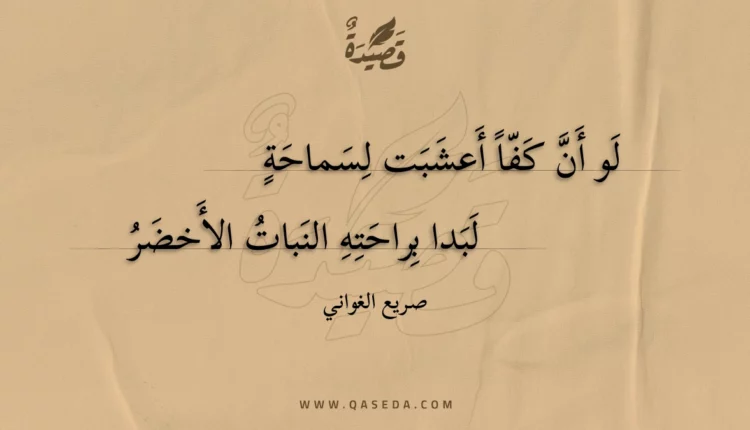 قَصِيْدَةٌ
لَو أَنَّ كَفّاً أَعشَبَت لِسَماحَةٍ
لَبَدا بِراحَتِهِ النَباتُ الأَخضَرُ
صريع الغواني
WWW.QASEDA.COM